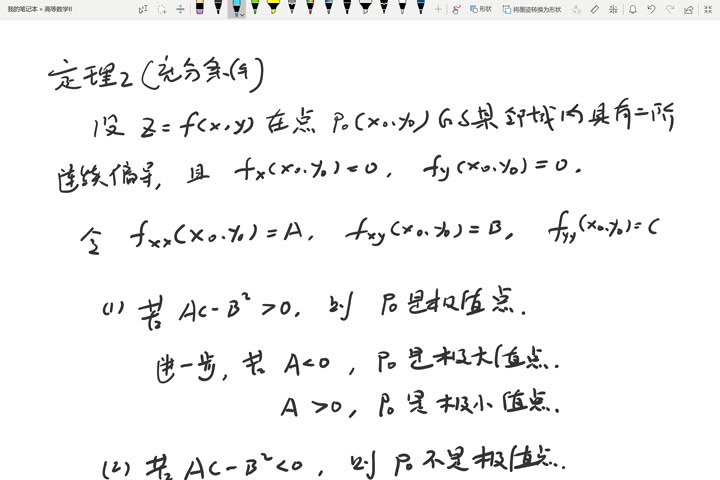 我的笔记本 » 高等数学II
形状
将墨迹转换为形状
定理2(充分条件)
设 z=f(x,y) 在点 P₀(x₀,y₀) 的某邻域内具有二阶
连续偏导, 且 fx(x₀,y₀)=0, fy(x₀,y₀)=0.
令 fxx(x₀,y₀)=A, fxy(x₀,y₀)=B, fyy(x₀,y₀)=C
(1) 若 AC-B²>0, 则 P₀是极值点.
进一步, 若 A<0, P₀是极大值点.
A>0, P₀是极小值点.
(2) 若 AC-B²<0, 则 P₀不是极值点.